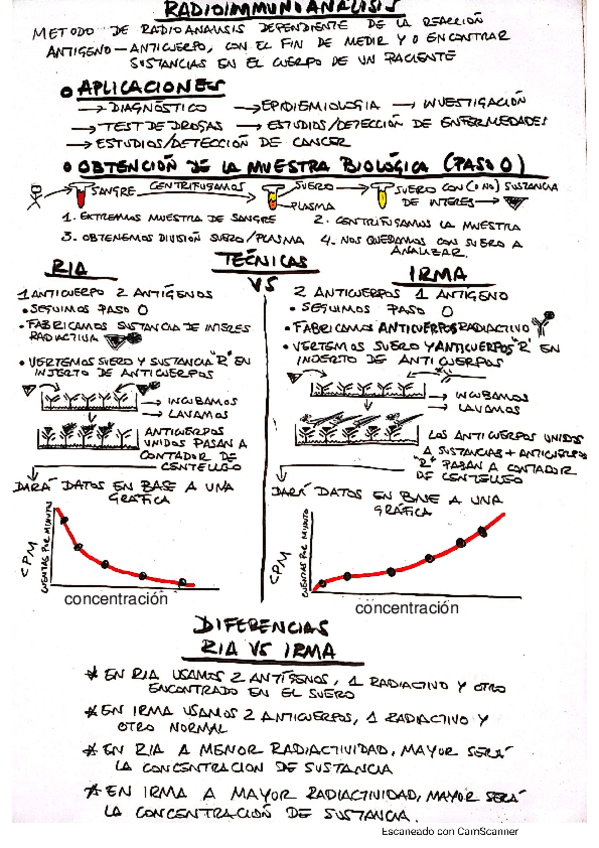 RADIOINMUNOANÁLISIS
METODO DE RADIOANALISIS DEPENDIENTE DE LA REACCIÓN
ANTIGENO-ANTICUERPO, CON EL FIN DE MEDIR Y/O ENCONTRAR
SUSTANCIAS EN EL CUERPO DE UN PACIENTE
• APLICACIONES
→ DIAGNÓSTICO → EPIDIEMIOLOGIA → INVESTIGACIÓN
→ TEST DE DROGAS → ESTUDIOS/DETECCIÓN DE ENFERMEDADES
→ ESTUDIOS/DETECCIÓN DE CANCER
• OBTENCIÓN DE LA MUESTRA BIOLÓGICA (PASO 0)
SANGRE CENTRIFUGAMOS SUERO SUERO CON (O NO) SUSTANCIA
PLASMA DE INTERES →
1. EXTREMOS MUESTRA DE SANGRE 2. CENTRIFUGAMOS LA MUESTRA
3. OBTENEMOS DIVISIÓN SUERO/PLASMA 4. NOS QUEDAMOS CON SUERO A
ANALIZAR.
TECNICAS
RIA VS IRMA
1 ANTICUERPO 2 ANTÍGENOS
• SEGUIMOS PASO 0
• FABRICAMOS SUSTANCIA DE INTERES
RADIACTIVA
• VERTEMOS SUERO Y SUSTANCIA "R" EN
INJERTO DE ANTICUERPOS
→ INCUBAMOS
→ LAVAMOS
ANTICUERPOS
UNIDOS PASAN A
CONTADOR DE
CENTELLEO
DARÁ DATOS EN BASE A UNA
GRÁFICA
CPM
CUENTAS POR MINUTO
concentración
2 ANTICUERPOS 1 ANTIGENO
• SEGUIMOS PASO 0
• FABRICAMOS ANTICUERPOS RADIACTIVO
• VERTEMOS SUERO Y ANTICUERPOS "R" EN
INJERTO DE ANTICUERPOS
→ INCUBAMOS
→ LAVAMOS
LOS ANTICUERPOS UNIDOS
A SUSTANCIAS + ANTICUERPO
"R" PASAN A CONTADOR
DE CENTELLEO
DARÁ DATOS EN BASE A UNA
GRÁFICA
CPM
CUENTAS POR MINUTO
concentración
DIFERENCIAS
RIA VS IRMA
* EN RIA USAMOS 2 ANTÍGENOS, 1 RADIACTIVO Y OTRO
ENCONTRADO EN EL SUERO
* EN IRMA USAMOS 2 ANTICUERPOS, 1 RADIACTIVO Y
OTRO NORMAL
* EN RIA A MENOR RADIACTIVIDAD, MAYOR SERÁ
LA CONCENTRACION DE SUSTANCIA
* EN IRMA A MAYOR RADIACTIVIDAD, MAYOR SERÁ
LA CONCENTRACIÓN DE SUSTANCIA.
Escaneado con CamScanner